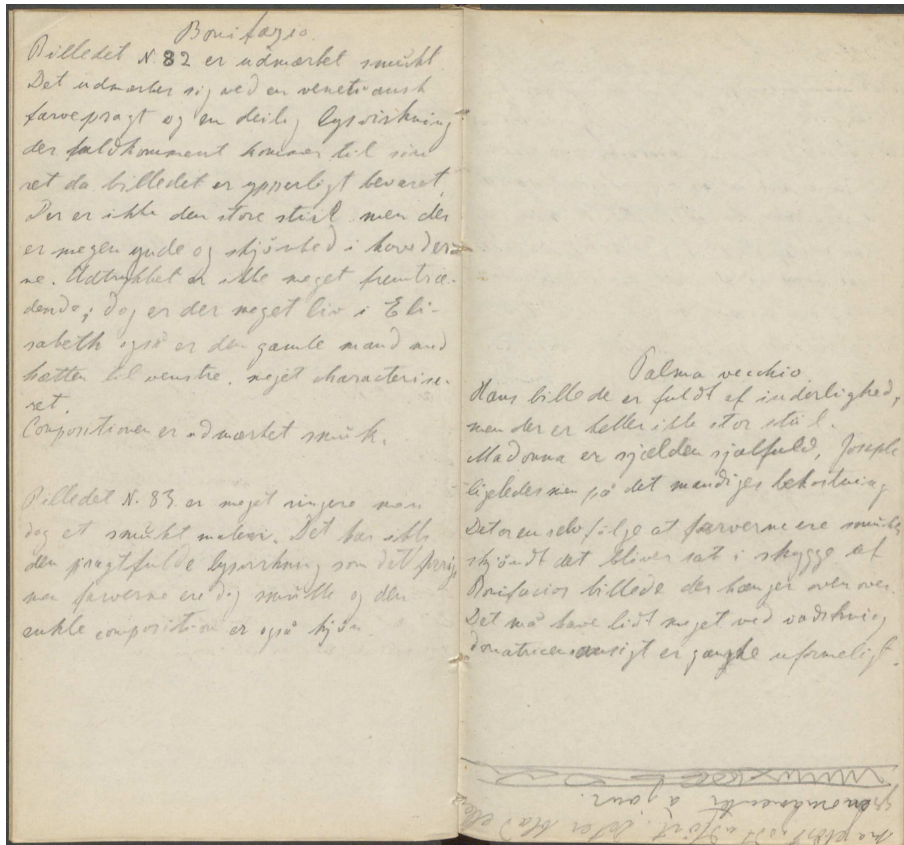 Bonifazio.
Billedet N. 82 er udmærket smukt.
Det udmærker sig ved en venetiansk
farvepragt og en deilig lysvirkning
der fuldkomment kommer til sin
ret da billedet er ypperligt bevaret.
Der er ikke den store stiil men der
er megen ynde og skjönhed i hoveder-
ne. Udtrykket er ikke meget fremtræ-
dende; dog er der meget liv i Eli-
sabeth også er den gamle mand med
hætten til venstre meget characterise-
ret.
Compositionen er udmærket smuk.
Billedet N. 83 er meget ringere men
dog et smukt maleri. Det har ikke
den pragtfulde lysvirkning som det forrige
men farverne ere dog smukke og den
enkle composition er også kjön.
Palma vecchio
Hans billede er fuldt af inderlighed,
men der er heller ikke stor stiil.
Madonna er sjælden sjælfuld, Joseph
ligeledes men på det mandiges bekostning
Det er en selvfölge at farverne ere smukke
skjöndt det bliver sat i skygge af
Bonifacios billede der hænger oven over.
Det må have lidt meget ved vadskning
donatricens ansigt er ganske uformeligt.
ornamenter à jour.